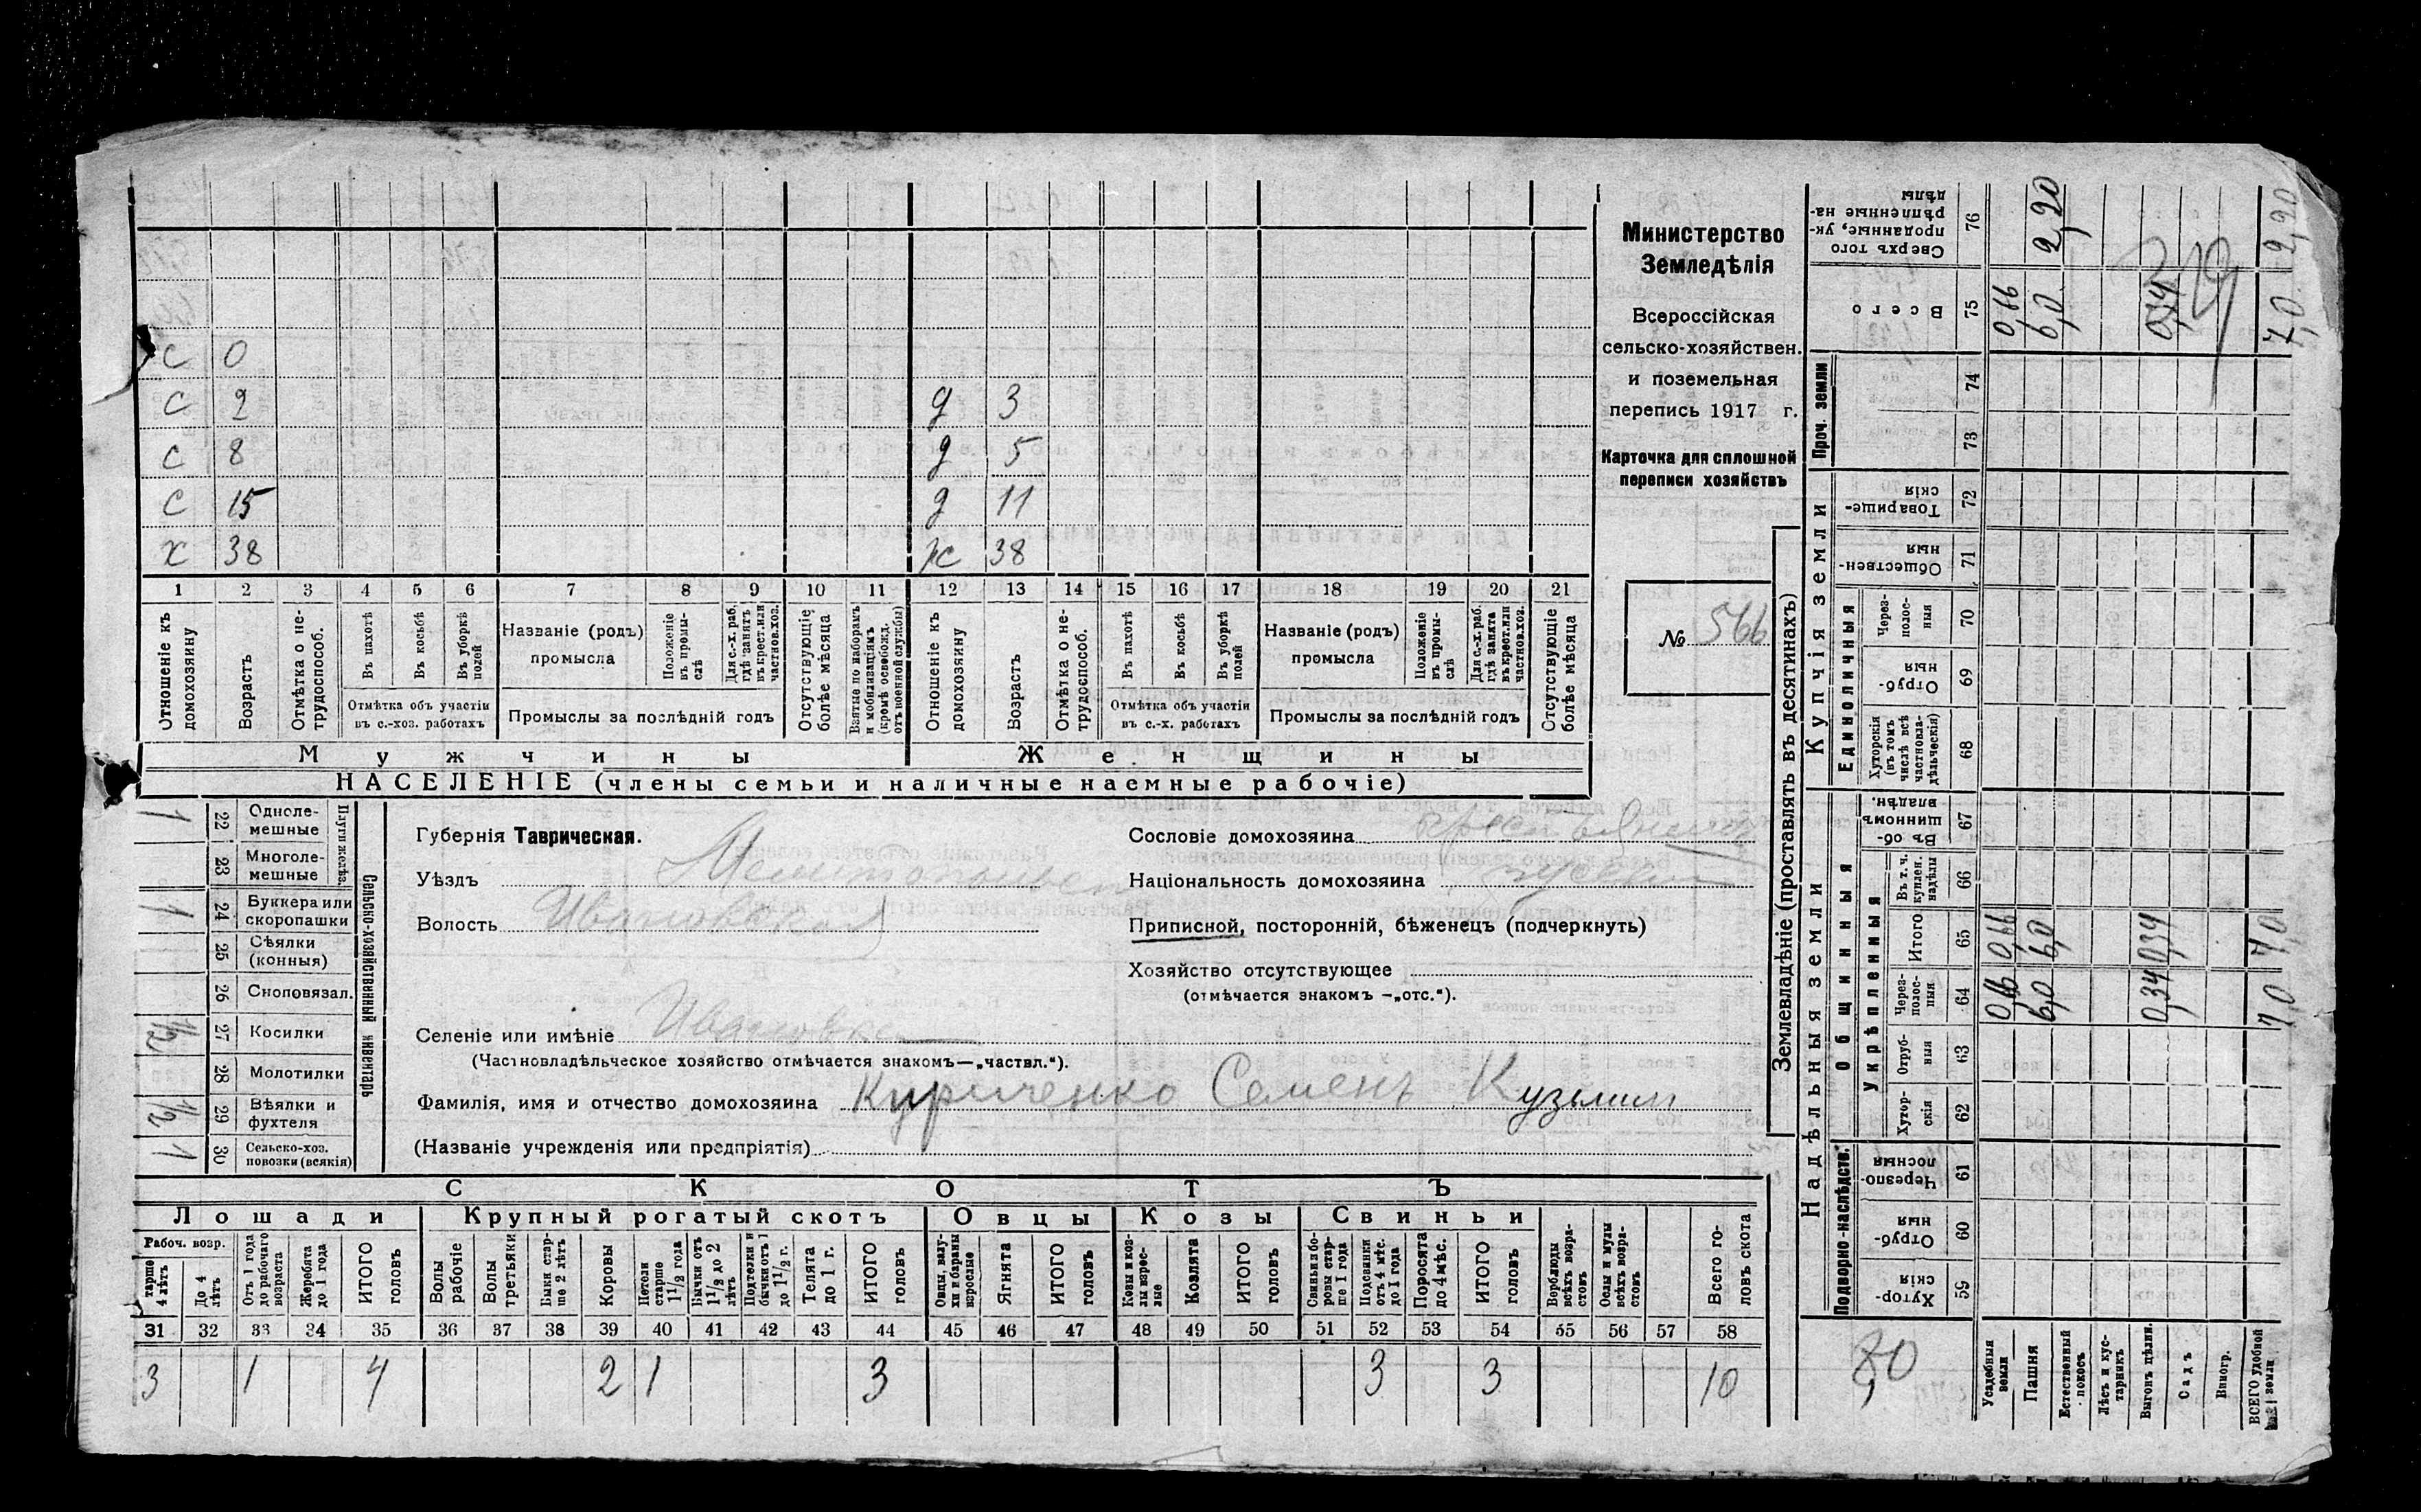 с 0
с 2 д 3
с 8 д 5
с 15 д 11
х 38 ж 38
1 2 3 4 5 6 7 8 9 10 11 12 13 14 15 16 17 18 19 20 21
Отношеніе къ домохозяину
Возрастъ
Отмѣтка о не-
трудоспособ.
Въ пахотѣ
Въ косьбѣ
Въ уборкѣ
полей
Отмѣтка объ участіи
въ с.-хоз. работахъ
Названіе (родъ)
промысла
Положеніе
въ промы-
слѣ
Для с.-х. раб.
гдѣ занятъ
въ крест. или
частнов. хоз.
Промыслы за послѣдній годъ
Отсутствующіе
болѣе мѣсяца
Взятые по наборамъ
и мобилизаціямъ
(кромѣ освобожд.
отъ военной службы)
Отношеніе къ
домохозяину
Возрастъ
Отмѣтка о не-
трудоспособ.
Въ пахотѣ
Въ косьбѣ
Въ уборкѣ
полей
Отмѣтка объ участіи
въ с.-х. работахъ
Названіе (родъ)
промысла
Положеніе
въ промы-
слѣ
Для с.-х. раб.
гдѣ занята
въ крест. или
частнов. хоз.
Промыслы за послѣдній годъ
Отсутствующіе
болѣе мѣсяца
Мужчины Женщины
НАСЕЛЕНІЕ (члены семьи и наличные наемные рабочіе)
Министерство
Земледѣлія
Всероссійская
сельско-хозяйствен.
и поземельная
перепись 1917 г.
Карточка для сплошной
переписи хозяйствъ
№ 566
Сельско-хозяйственный инвентарь
Плуги желѣз.
1 22 Одноле-
мешные
23 Многоле-
мешные
1 24 Буккера или
скоропашки
25 Сѣялки
(конныя)
26 Сноповязал.
1/2 27 Косилки
28 Молотилки
1/2 29 Вѣялки и
фухтеля
1 30 Сельско-хоз.
повозки (всякія)
Губернія Таврическая.
Уѣздъ Мелитопольск
Волость Ивановская
Селеніе или имѣніе Ивановка
(Частновладѣльческое хозяйство отмѣчается знакомъ—„частвл.“).
Фамилія, имя и отчество домохозяина Куриченко Семенъ Кузьмин
(Названіе учрежденія или предпріятія)
Сословіе домохозяина крестьянинъ
Національность домохозяина русскій
Приписной, посторонній, бѣженецъ (подчеркнуть)
Хозяйство отсутствующее
(отмѣчается знакомъ —„отс.“).
СКОТЪ
Лошади Крупный рогатый скотъ Овцы Козы Свиньи
Рабоч. возр.
тарше
4 лѣтъ
До 4
лѣтъ
Отъ 1 года
до рабочаго
возраста
Жеребята
до 1 года
ИТОГО
головъ
Волы
рабочіе
Волы
третьяки
Быки стар-
ше 2 лѣтъ
Коровы
Нетели
старше
1 1/2 года
Бычки отъ
1 1/2 до 2
лѣтъ
Подтелки и
бычки отъ 1
до 1 1/2 г.
Телята
до 1 г.
ИТОГО
головъ
Овцы, валу-
хи и бараны
взрослые
Ягнята
ИТОГО
головъ
Козы и коз-
лы взрос-
лые
Козлята
ИТОГО
головъ
Свиньи и бо-
ровы стар-
ше 1 года
Подсвинки
отъ 4 мѣс.
до 1 года
Поросята
до 4 мѣс.
ИТОГО
головъ
Верблюды
всѣхъ возра-
стовъ
Ослы и мулы
всѣхъ возра-
стовъ
Всего го-
ловъ скота
31 32 33 34 35 36 37 38 39 40 41 42 43 44 45 46 47 48 49 50 51 52 53 54 55 56 57 58
3 1 4 2 1 3 3 3 10
Землевладѣніе (проставлять въ десятинахъ)
Купчія земли
Надѣльныя земли
Проч. земли
Единоличныя
Общинныя
Укрѣпленныя
Подворно-наслѣдств.
Сверхъ того
проданные, ук-
рѣпленные на-
дѣлы
76
2,20
2,20
Всего
75
0,66
6,0
0,34
7,0
74
73
Товарище-
скія
72
Обществен-
ныя
71
Через-
полос-
ныя
70
Отруб-
ныя
69
Хуторскія
(въ томъ
числѣ всѣ
частновла-
дѣльческія)
68
Въ об-
щинномъ
владѣн.
67
Въ т. ч.
куплен.
надѣлы
66
Итого
65
0,66
6,0
0,34
7,0
Через-
полос-
ныя
64
0,66
6,0
0,34
7,0
Отруб-
ныя
63
Хутор-
скія
62
Черезпо-
лосныя
61
Отруб-
ныя
60
Хутор-
скія
59
Усадебныя
земли
Пашня
Естественный
покосъ
Лѣсъ и кус-
тарникъ
Выгонъ цѣлин.
Садъ
Виногр.
ВСЕГО удобной
земли